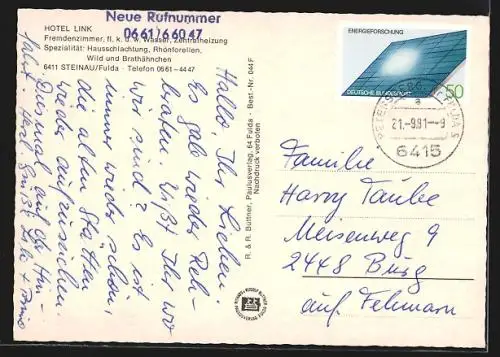 Neue Rufnummer
0661/66047
HOTEL LINK
Fremdenzimmer, fl. k. u. w. Wasser, Zentralheizung
Spezialität: Hausschlachtung, Rhönforellen,
Wild und Brathähnchen
6411 STEINAU/Fulda · Telefon 0661-4447
Hallo, Ihr Lieben.
Es gab wieder Reh-
braten. Wißt Ihr wo
wir sind? Es ist
immer wieder schön,
die alten Stätten
wieder aufzusuchen.
Diesmal auf der Hin-
fahrt. Herzl. Grüße
R. & R. Büttner, Paulusverlag, 64 Fulda · Best.-Nr. 044 F
Nachdruck verboten
ENERGIEFORSCHUNG
DEUTSCHE BUNDESPOST
50
PETERSBERG
a
21.-9.81.-9
6415
Familie
Harry Taube
Meisenweg 9
2448 Burg
auf Fehmarn